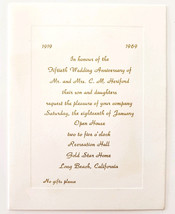 1919 1969
In honour of the
Fiftieth Wedding Anniversary of
Mr. and Mrs. C. M. Hereford
their son and daughters
request the pleasure of your company
Saturday, the eighteenth of January
Open House
two to five o'clock
Recreation Hall
Gold Star Home
Long Beach, California
No gifts please